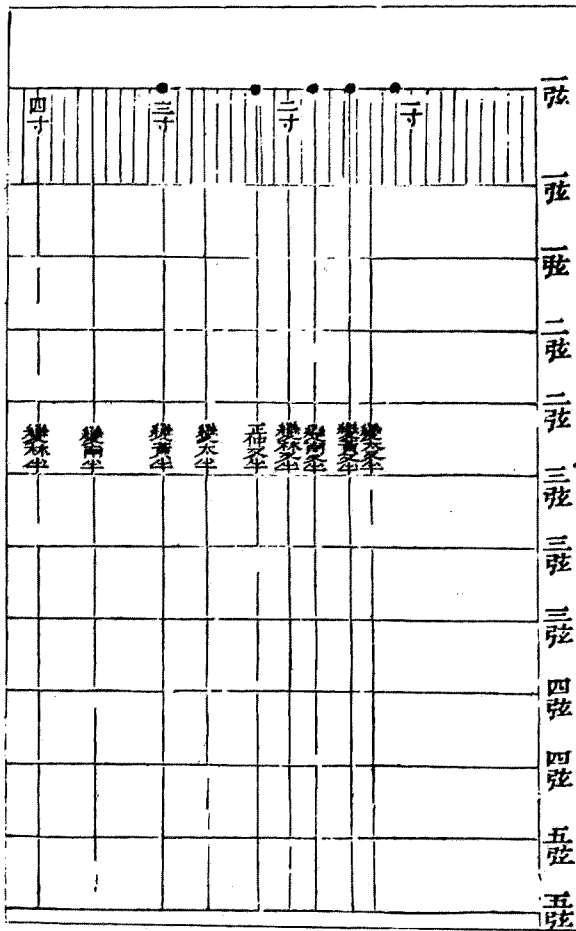 一弦
一弦
一弦
二弦
二弦
三弦
三弦
三弦
四弦
四弦
五弦
五弦
一寸
二寸
三寸
四寸
變太又半
變黃又半
變南又半
變林又半
正仲又半
變太半
變黃半
變南半
變林半